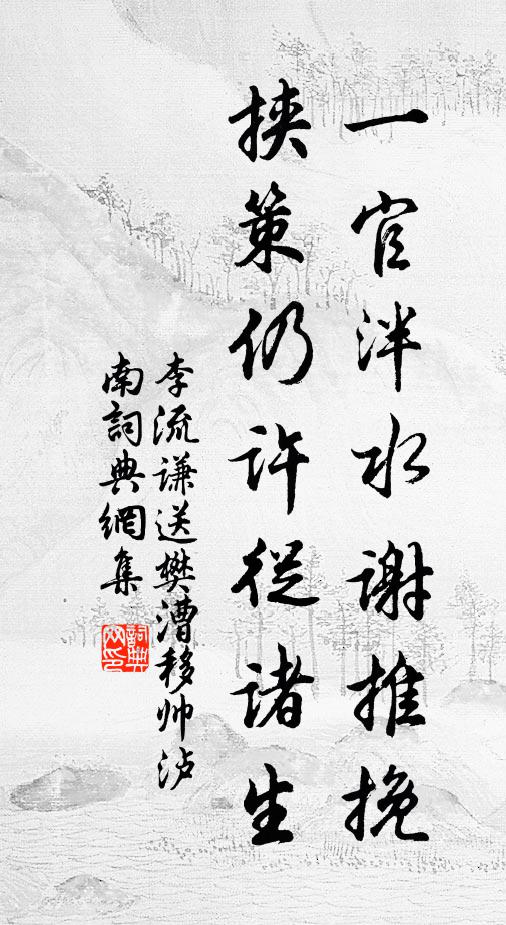 一官泮水谢推挽
挟策仍许從诸生
李流谦送樊漕移帅泸
南詞典網集
詞典网印